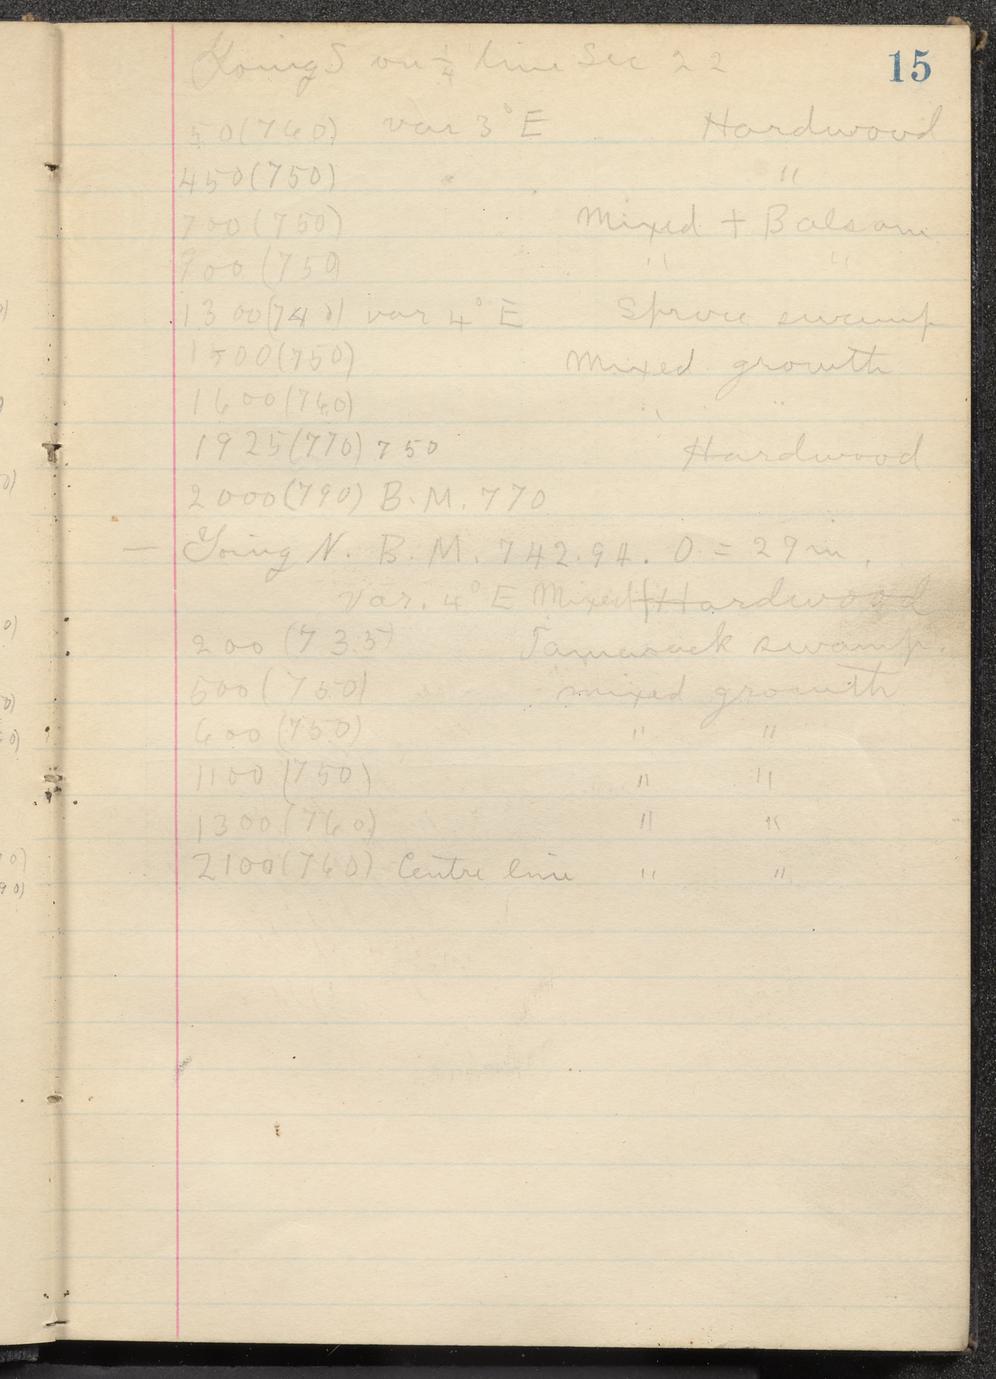 15
Going S on 1/4 line Sec 22
50(760) var 3° E Hardwood
450(750) "
700(750) Mixed + Balsam
900(750) " "
1300(740) var 4° E Spruce swamp
1500(750) Mixed growth
1600(760) " "
1925(770) 750 Hardwood
2000(790) B.M. 770
— Going N. B.M. 742.94. 0 = 29 in.
var. 4° E Mixed + Hardwood
200 (735) Tamarack swamp.
500 (750) mixed growth
600 (750) " "
1100 (750) " "
1300 (760) " "
2100(760) Centre line " "